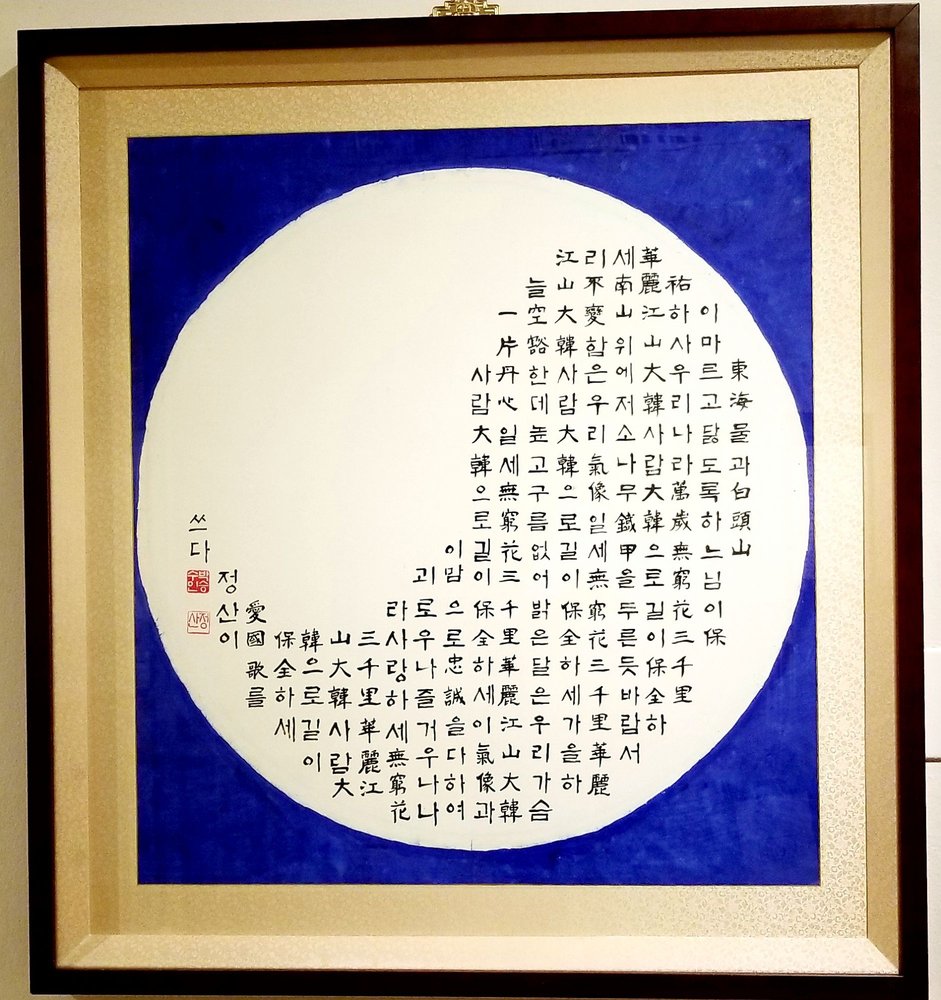 東海물과白頭山
이마르고닳도록하느님이保
祐하사우리나라萬歲無窮花三千里
華麗江山大韓사람大韓으로길이保全하
세南山위에저소나무鐵甲을두른듯바람서
리不變함은우리氣像일세無窮花三千里華麗
江山大韓사람大韓으로길이保全하세가을하
늘空豁한데높고구름없어밝은달은우리가슴
一片丹心일세無窮花三千里華麗江山大韓
사람大韓으로길이保全하세이氣像과
이맘으로忠誠을다하여
괴로우나즐거우나나
라사랑하세無窮花
三千里華麗江
山大韓사람大
韓으로길이
保全하세
愛國歌를
정산이
쓰다
박승수인
정산